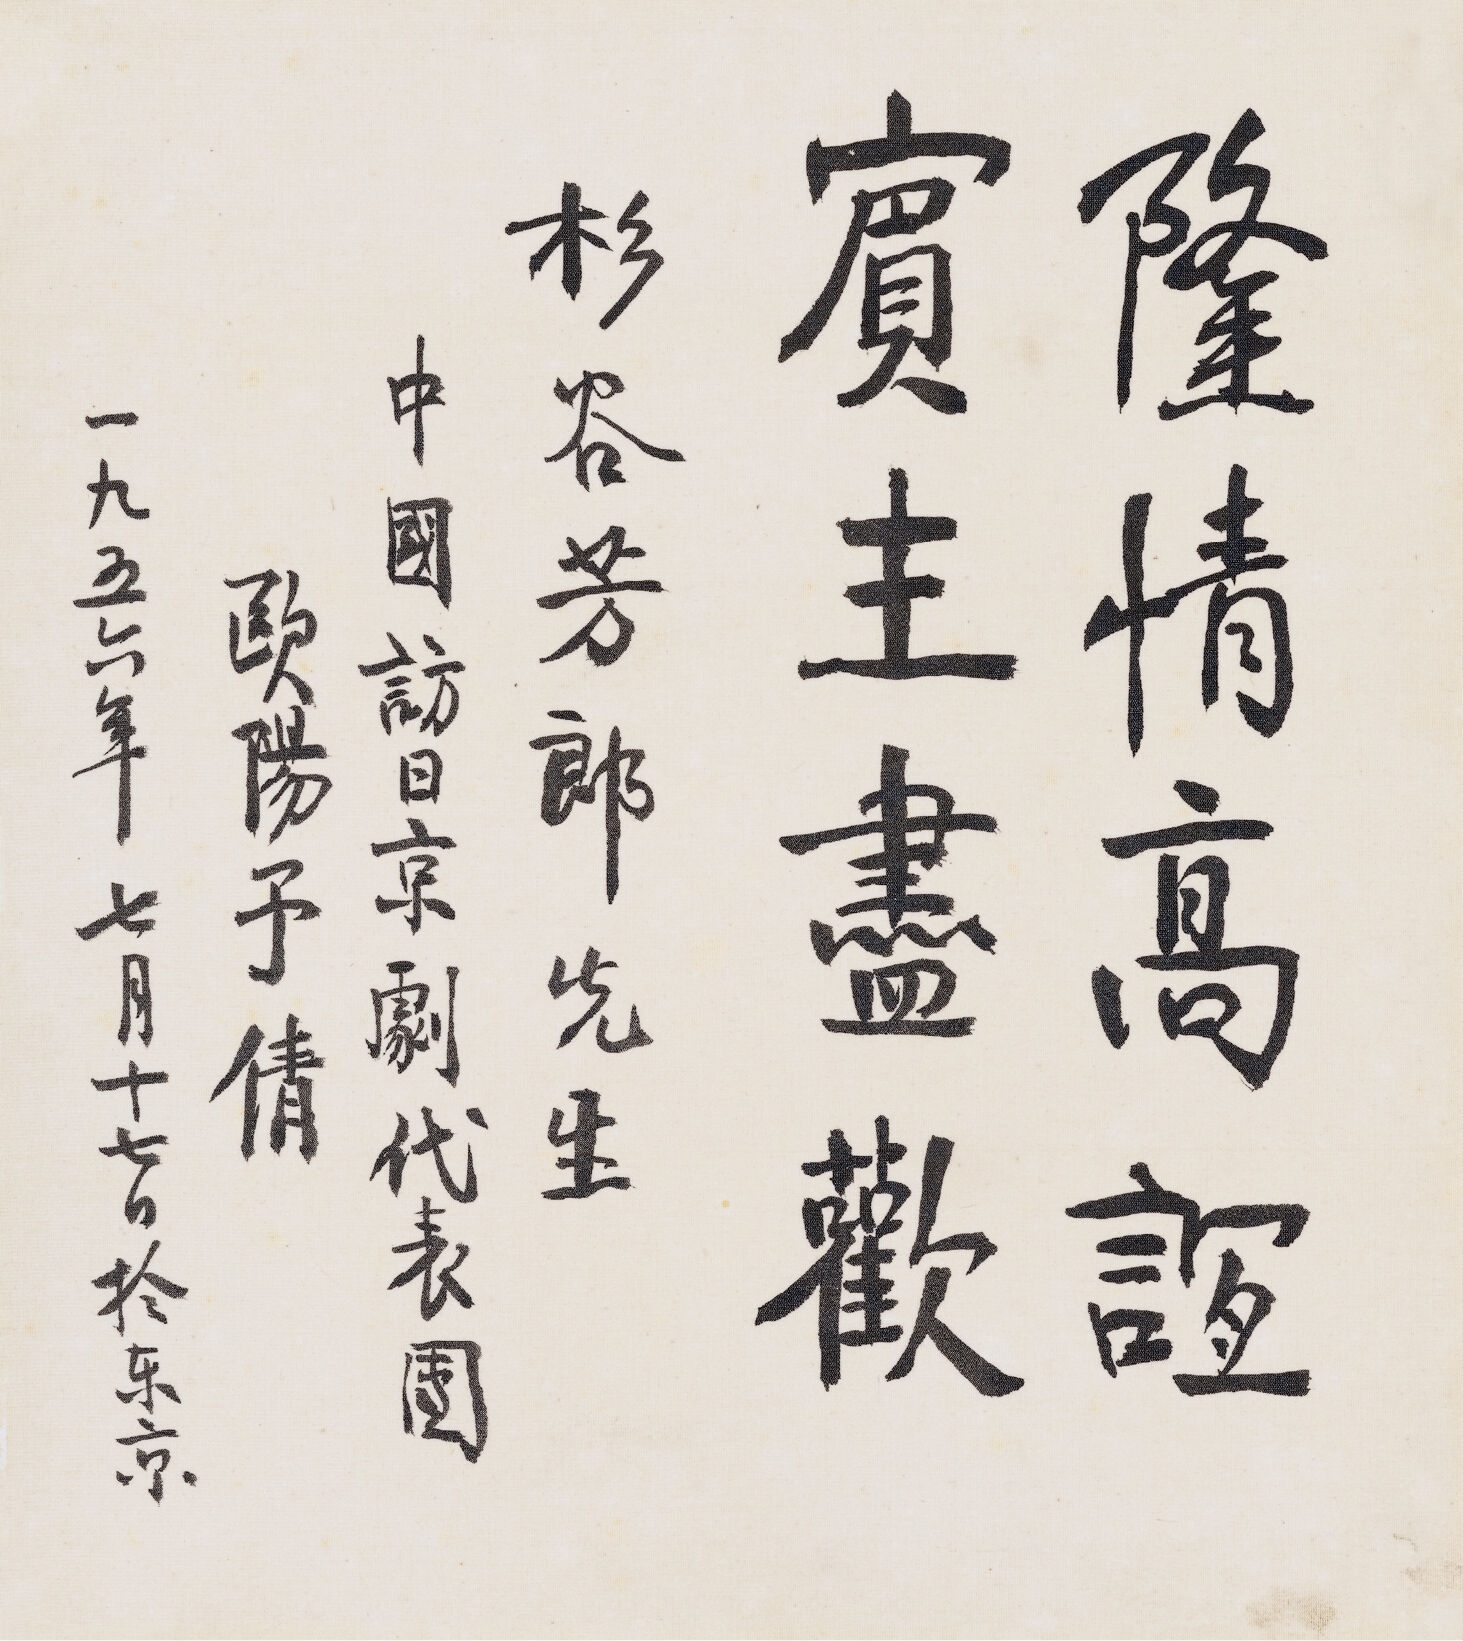 隆情高誼
賓主盡歡
杉谷芳郎先生
中國訪日京劇代表團
歐陽予倩
一九五六年七月十七日於东京